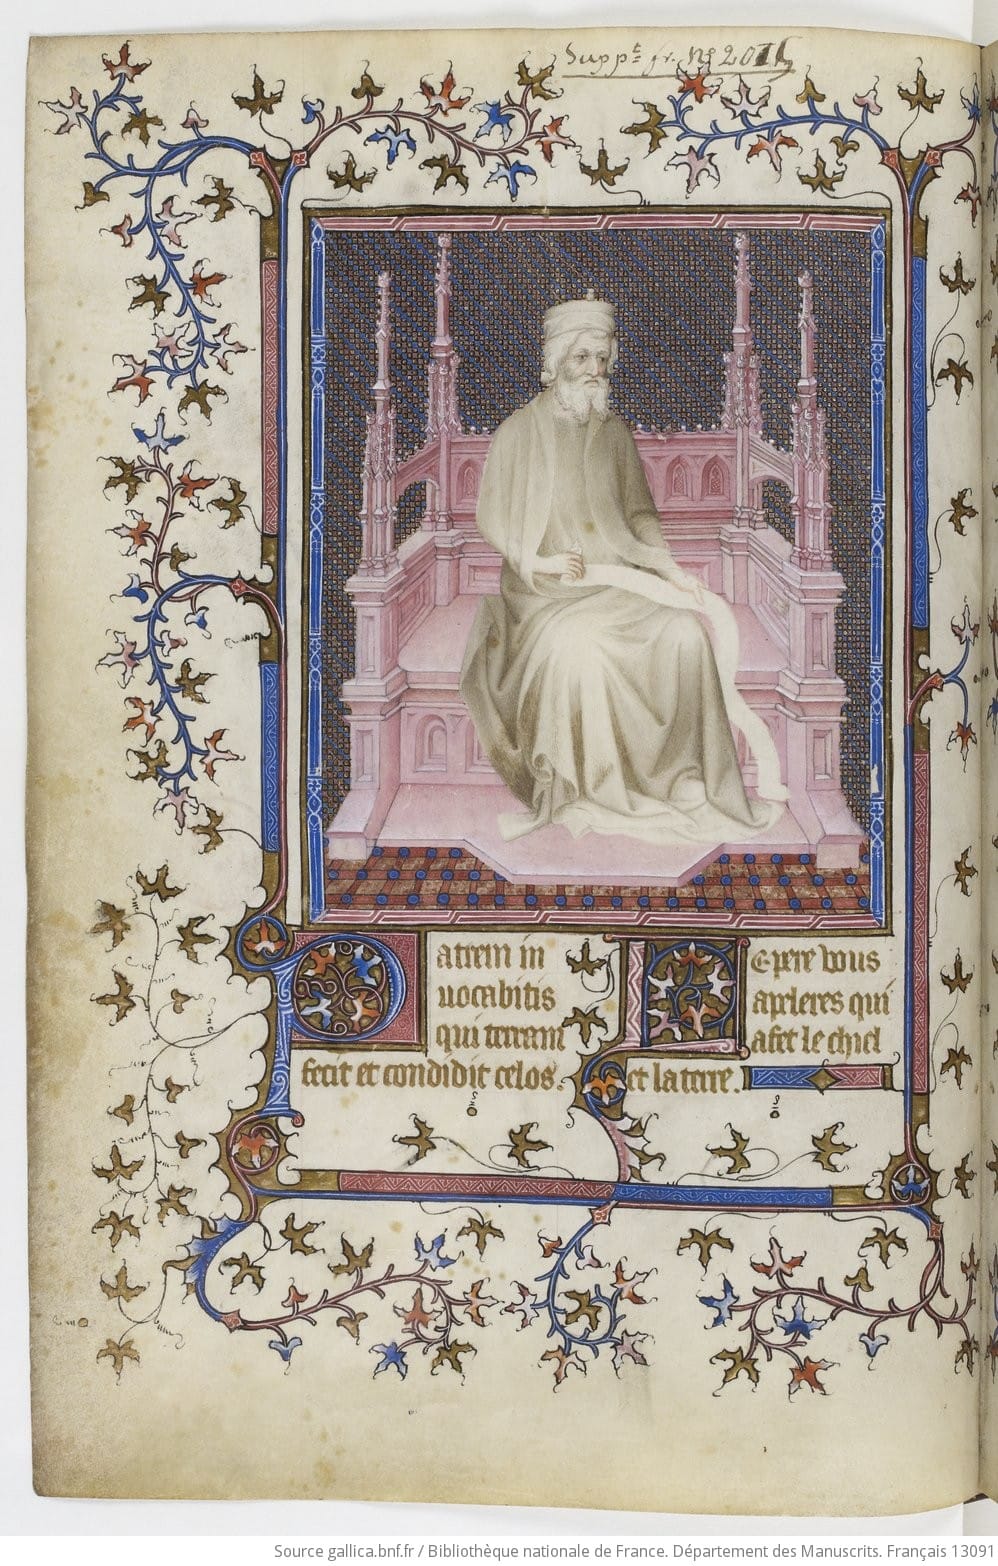 Supp.t fr. Nº 2015
Patrem in
uocabitis
qui terram
fecit et condidit celos.
De pere vous
apleres qui
a fet le chiel
et la terre.
Source gallica.bnf.fr / Bibliothèque nationale de France. Département des Manuscrits. Français 13091